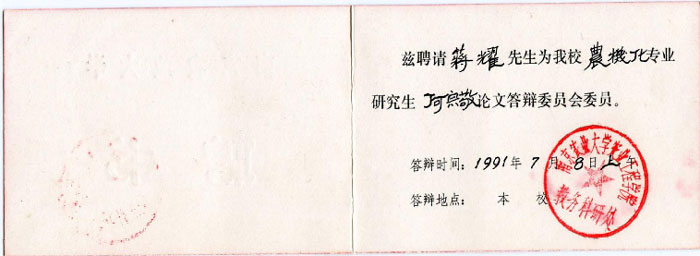 兹聘请 蒋耀 先生为我校 農機化 专业
研究生 何宗敬 论文答辩委员会委员。
答辩时间：1991年7月8日上午
答辩地点：本校
南京农业大学农业工程学院
教务科研处